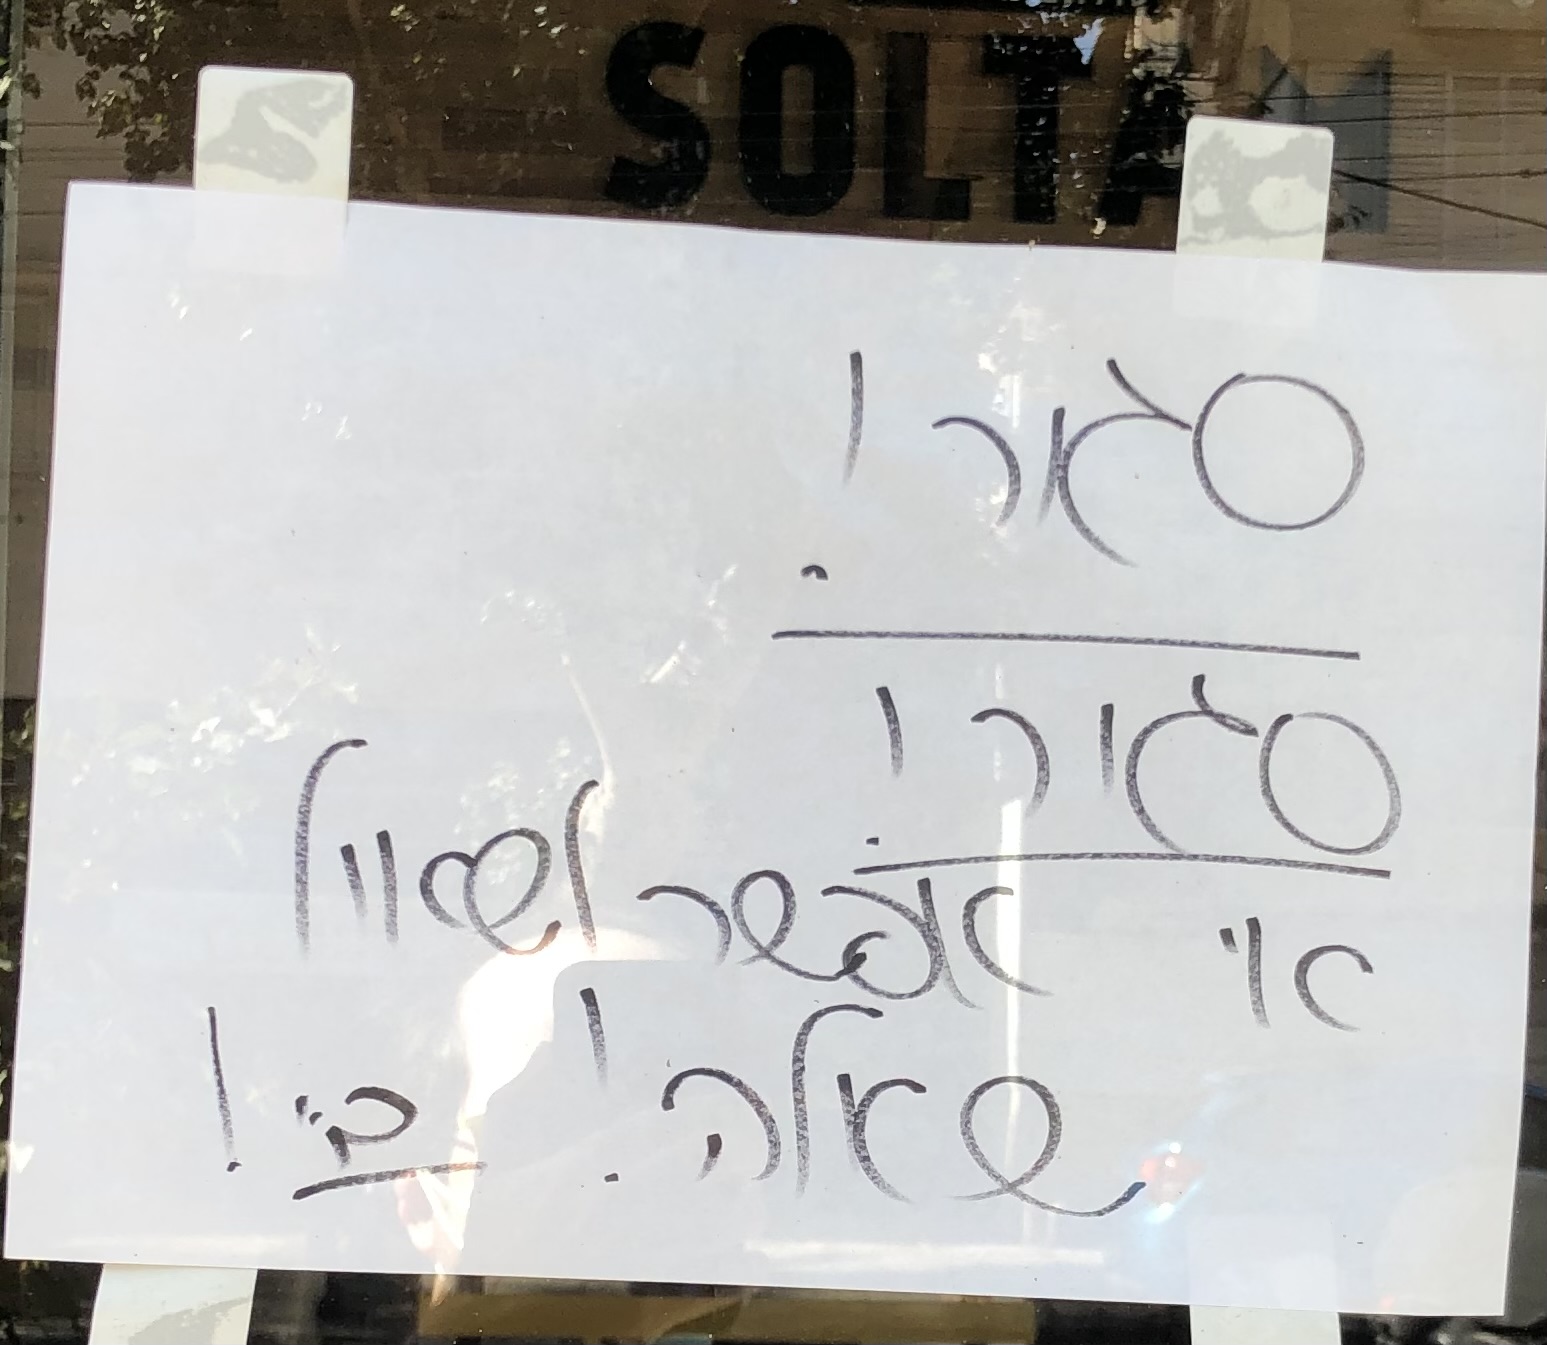 SOLTAM
סגור!
סגור!
אי אפשר לשאול
שאלה!